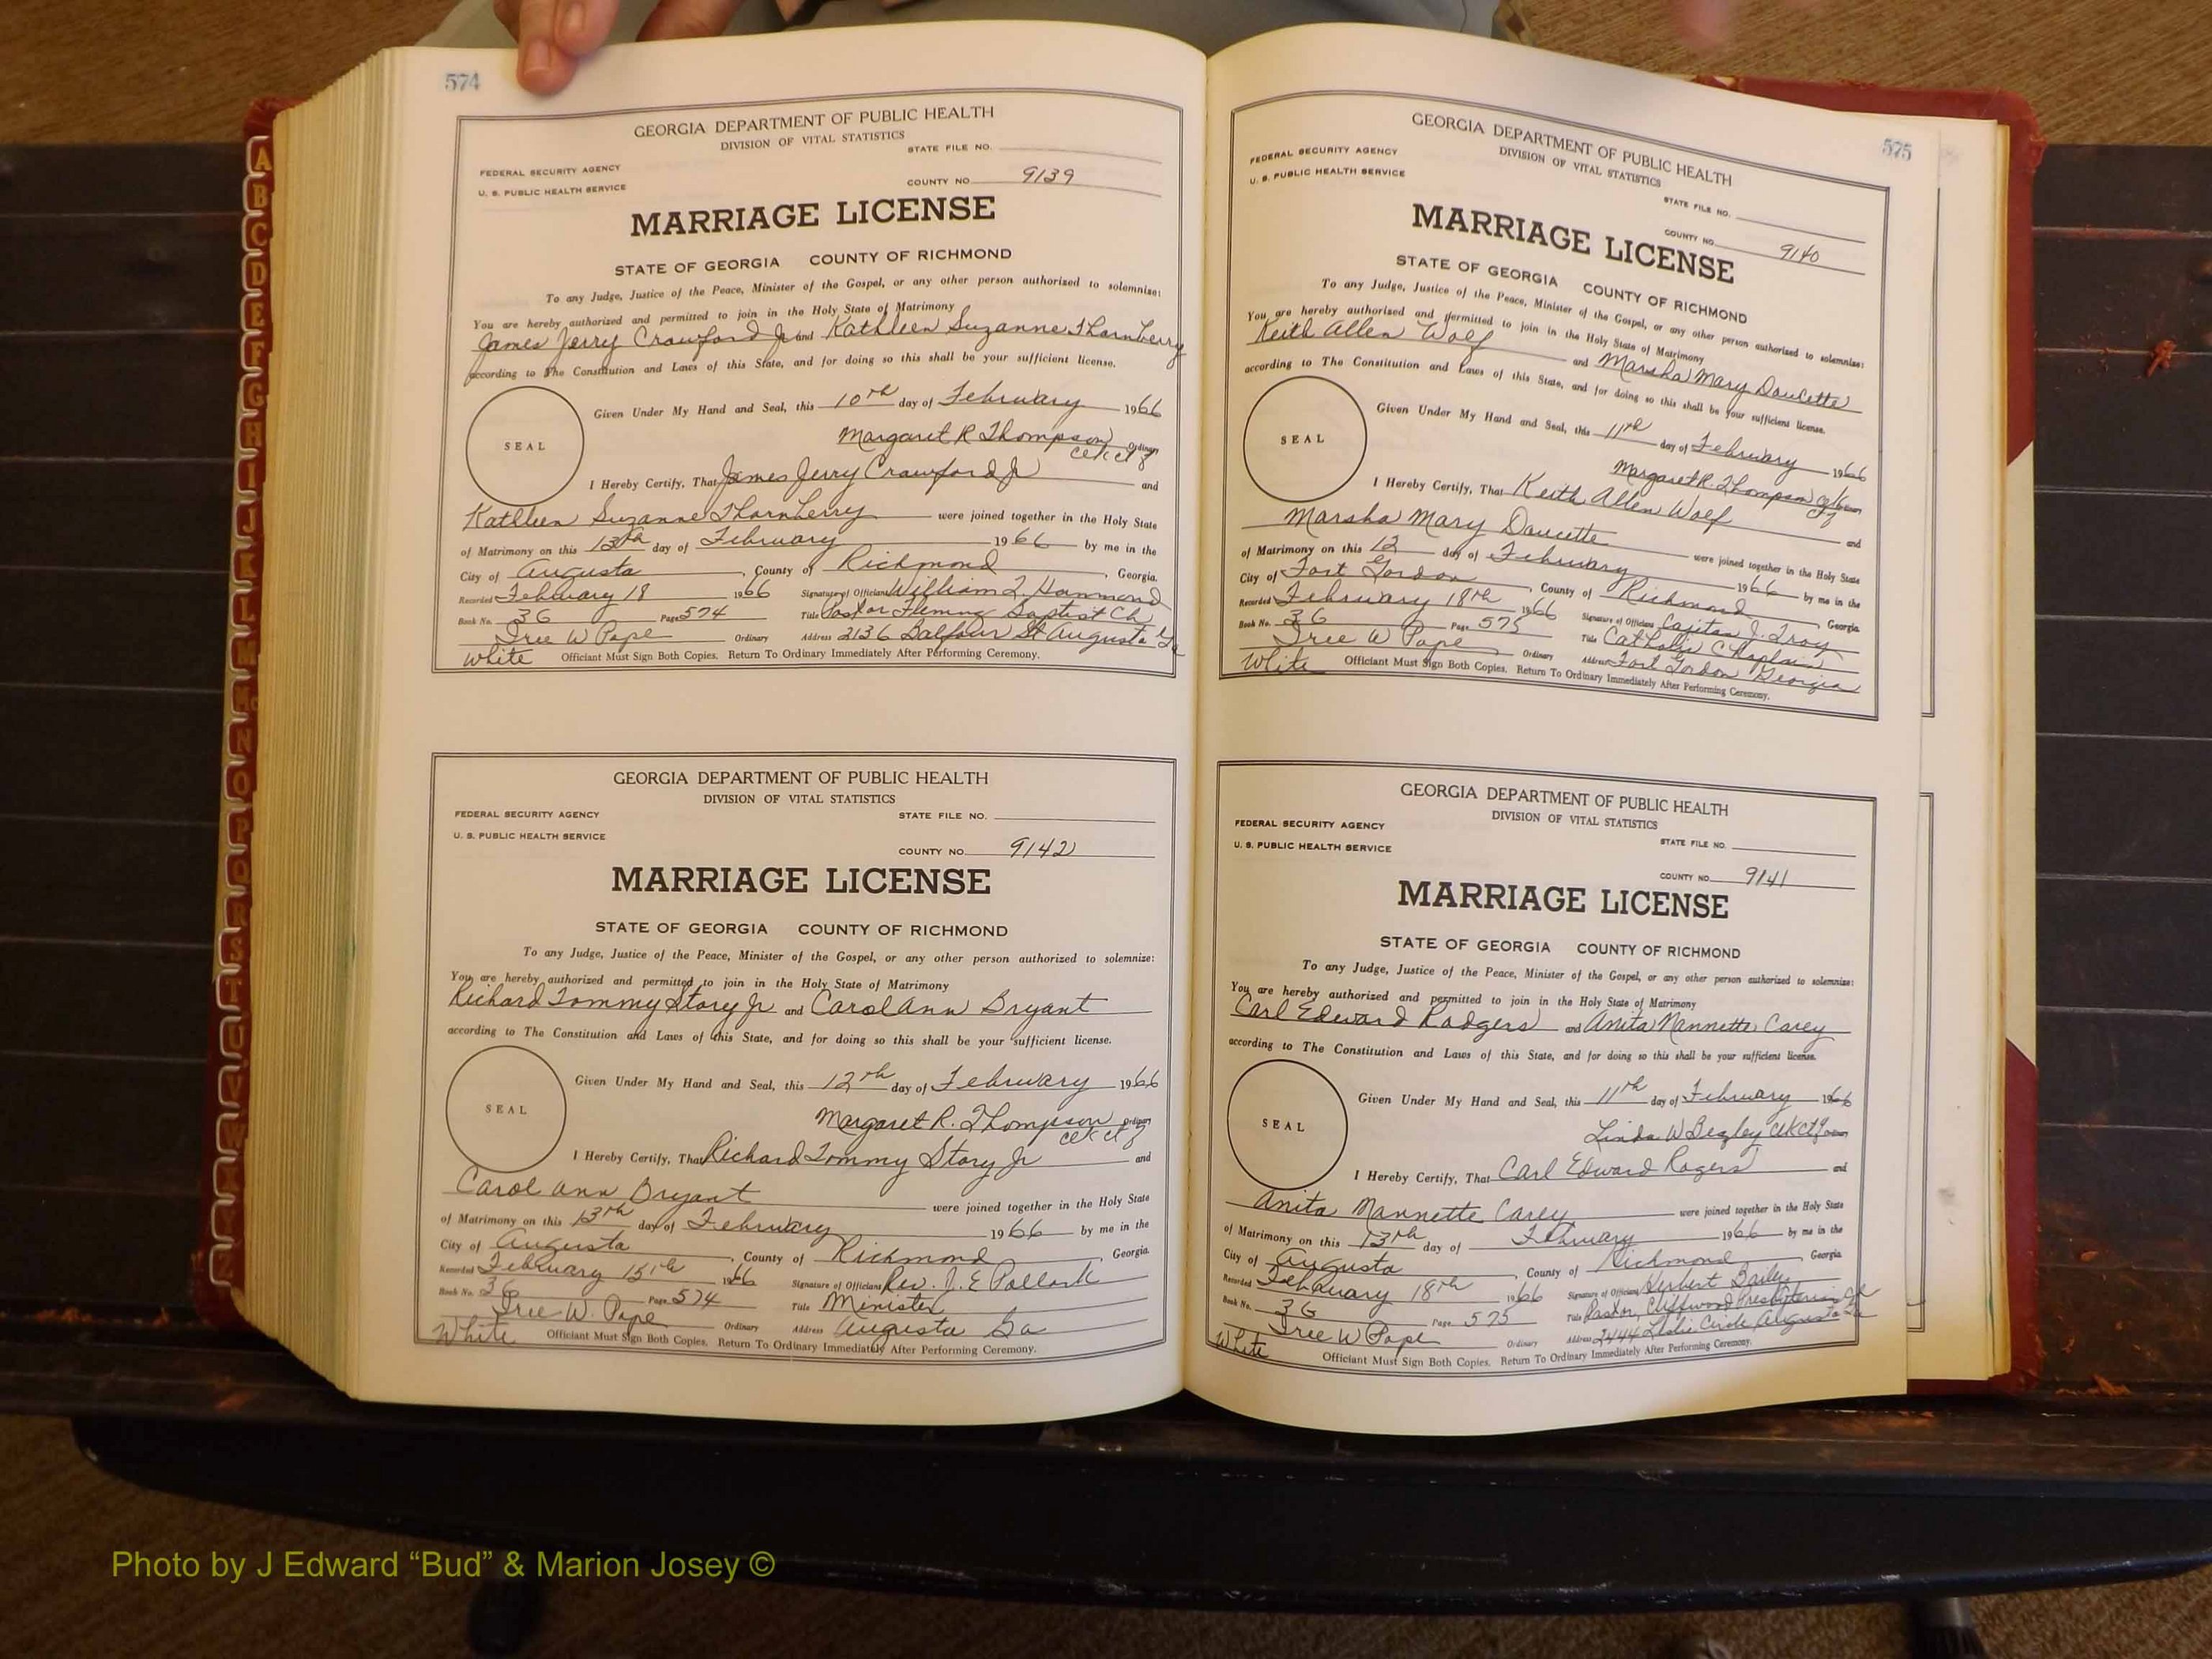 574
GEORGIA DEPARTMENT OF PUBLIC HEALTH
DIVISION OF VITAL STATISTICS
STATE FILE NO.
FEDERAL SECURITY AGENCY
U. S. PUBLIC HEALTH SERVICE
COUNTY NO. 9139
MARRIAGE LICENSE
STATE OF GEORGIA COUNTY OF RICHMOND
To any Judge, Justice of the Peace, Minister of the Gospel, or any other person authorized to solemnize:
You are hereby authorized and permitted to join in the Holy State of Matrimony
James Jerry Crawford Jr and Kathleen Suzanne Thornberry
according to The Constitution and Laws of this State, and for doing so this shall be your sufficient license.
SEAL
Given Under My Hand and Seal, this 10th day of February 1966
Margaret R Thompson Ordinary
I Hereby Certify, That James Jerry Crawford Jr and
Kathleen Suzanne Thornberry were joined together in the Holy State
of Matrimony on this 13th day of February 1966 by me in the
City of Augusta, County of Richmond, Georgia.
Recorded February 18 1966 Signature of Official William L. Hammond
Book No. 3G Page 574 Title Pastor Fleming Baptist Ch
Tree W Pope Ordinary Address 2136 Balfour St Augusta Ga
White Officiant Must Sign Both Copies. Return To Ordinary Immediately After Performing Ceremony.
GEORGIA DEPARTMENT OF PUBLIC HEALTH
DIVISION OF VITAL STATISTICS
FEDERAL SECURITY AGENCY
STATE FILE NO.
U. S. PUBLIC HEALTH SERVICE
COUNTY NO. 9142
MARRIAGE LICENSE
STATE OF GEORGIA COUNTY OF RICHMOND
To any Judge, Justice of the Peace, Minister of the Gospel, or any other person authorized to solemnize:
You are hereby authorized and permitted to join in the Holy State of Matrimony
Richard Tommy Story Jr and Carol Ann Bryant
according to The Constitution and Laws of this State, and for doing so this shall be your sufficient license.
SEAL
Given Under My Hand and Seal, this 12th day of February 1966
Margaret R. Thompson Ordinary
I Hereby Certify, That Richard Tommy Story Jr and
Carol Ann Bryant were joined together in the Holy State
of Matrimony on this 13th day of February 1966 by me in the
City of Augusta, County of Richmond, Georgia.
Recorded February 15th 1966 Signature of Official Rev. J. E Pollock
Book No. 3G Page 574 Title Minister
Tree W. Pope Ordinary Address Augusta Ga
White Officiant Must Sign Both Copies. Return To Ordinary Immediately After Performing Ceremony.
575
GEORGIA DEPARTMENT OF PUBLIC HEALTH
DIVISION OF VITAL STATISTICS
FEDERAL SECURITY AGENCY
U. S. PUBLIC HEALTH SERVICE
STATE FILE NO.
COUNTY NO. 9140
MARRIAGE LICENSE
STATE OF GEORGIA COUNTY OF RICHMOND
To any Judge, Justice of the Peace, Minister of the Gospel, or any other person authorized to solemnize:
You are hereby authorized and permitted to join in the Holy State of Matrimony
Keith Allen Wolf and Marsha Mary Daucette
according to The Constitution and Laws of this State, and for doing so this shall be your sufficient license.
SEAL
Given Under My Hand and Seal, this 11th day of February 1966
Margaret R. Thompson
I Hereby Certify, That Keith Allen Wolf and
Marsha Mary Daucette were joined together in the Holy State
of Matrimony on this 12 day of February 1966 by me in the
City of Fort Gordon, County of Richmond, Georgia
Recorded February 18th 1966 Signature of Official Cajitan J. Troy
Book No. 3G Page 575 Title Catholic Chaplain
Tree W Pope Ordinary Address Fort Gordon Georgia
White Officiant Must Sign Both Copies. Return To Ordinary Immediately After Performing Ceremony.
GEORGIA DEPARTMENT OF PUBLIC HEALTH
DIVISION OF VITAL STATISTICS
FEDERAL SECURITY AGENCY
STATE FILE NO.
U. S. PUBLIC HEALTH SERVICE
COUNTY NO. 9141
MARRIAGE LICENSE
STATE OF GEORGIA COUNTY OF RICHMOND
To any Judge, Justice of the Peace, Minister of the Gospel, or any other person authorized to solemnize:
You are hereby authorized and permitted to join in the Holy State of Matrimony
Carl Edward Rodgers and Anita Nannette Carey
according to The Constitution and Laws of this State, and for doing so this shall be your sufficient license.
SEAL
Given Under My Hand and Seal, this 11th day of February 1966
Linda W Begley
I Hereby Certify, That Carl Edward Rogers and
Anita Nannette Carey were joined together in the Holy State
of Matrimony on this 13th day of February 1966 by me in the
City of Augusta, County of Richmond, Georgia
Recorded February 18th 1966 Signature of Official Herbert Bailey
Book No. 3G Page 575 Title Pastor, Cliffwood Presbyterian
Tree W Pope Ordinary Address 2444 Leslie Circle Augusta Ga
White Officiant Must Sign Both Copies. Return To Ordinary Immediately After Performing Ceremony.
Photo by J Edward “Bud” & Marion Josey ©